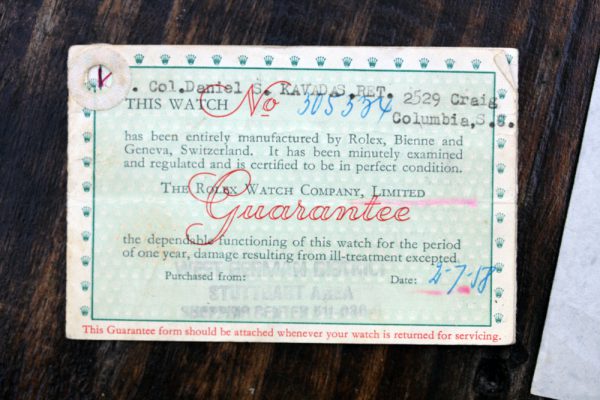 . Col.Daniel S. KAVADAS.RET. 2529 Craig
Columbia,S.C.
THIS WATCH No 305334
has been entirely manufactured by Rolex, Bienne and
Geneva, Switzerland. It has been minutely examined
and regulated and is certified to be in perfect condition.
THE ROLEX WATCH COMPANY, LIMITED
Guarantee
the dependable functioning of this watch for the period
of one year, damage resulting from ill-treatment excepted
Purchased from: Date: 2-7-58
DISTRICT
STUTTGART AREA
SHOPPING CENTER
This Guarantee form should be attached whenever your watch is returned for servicing.